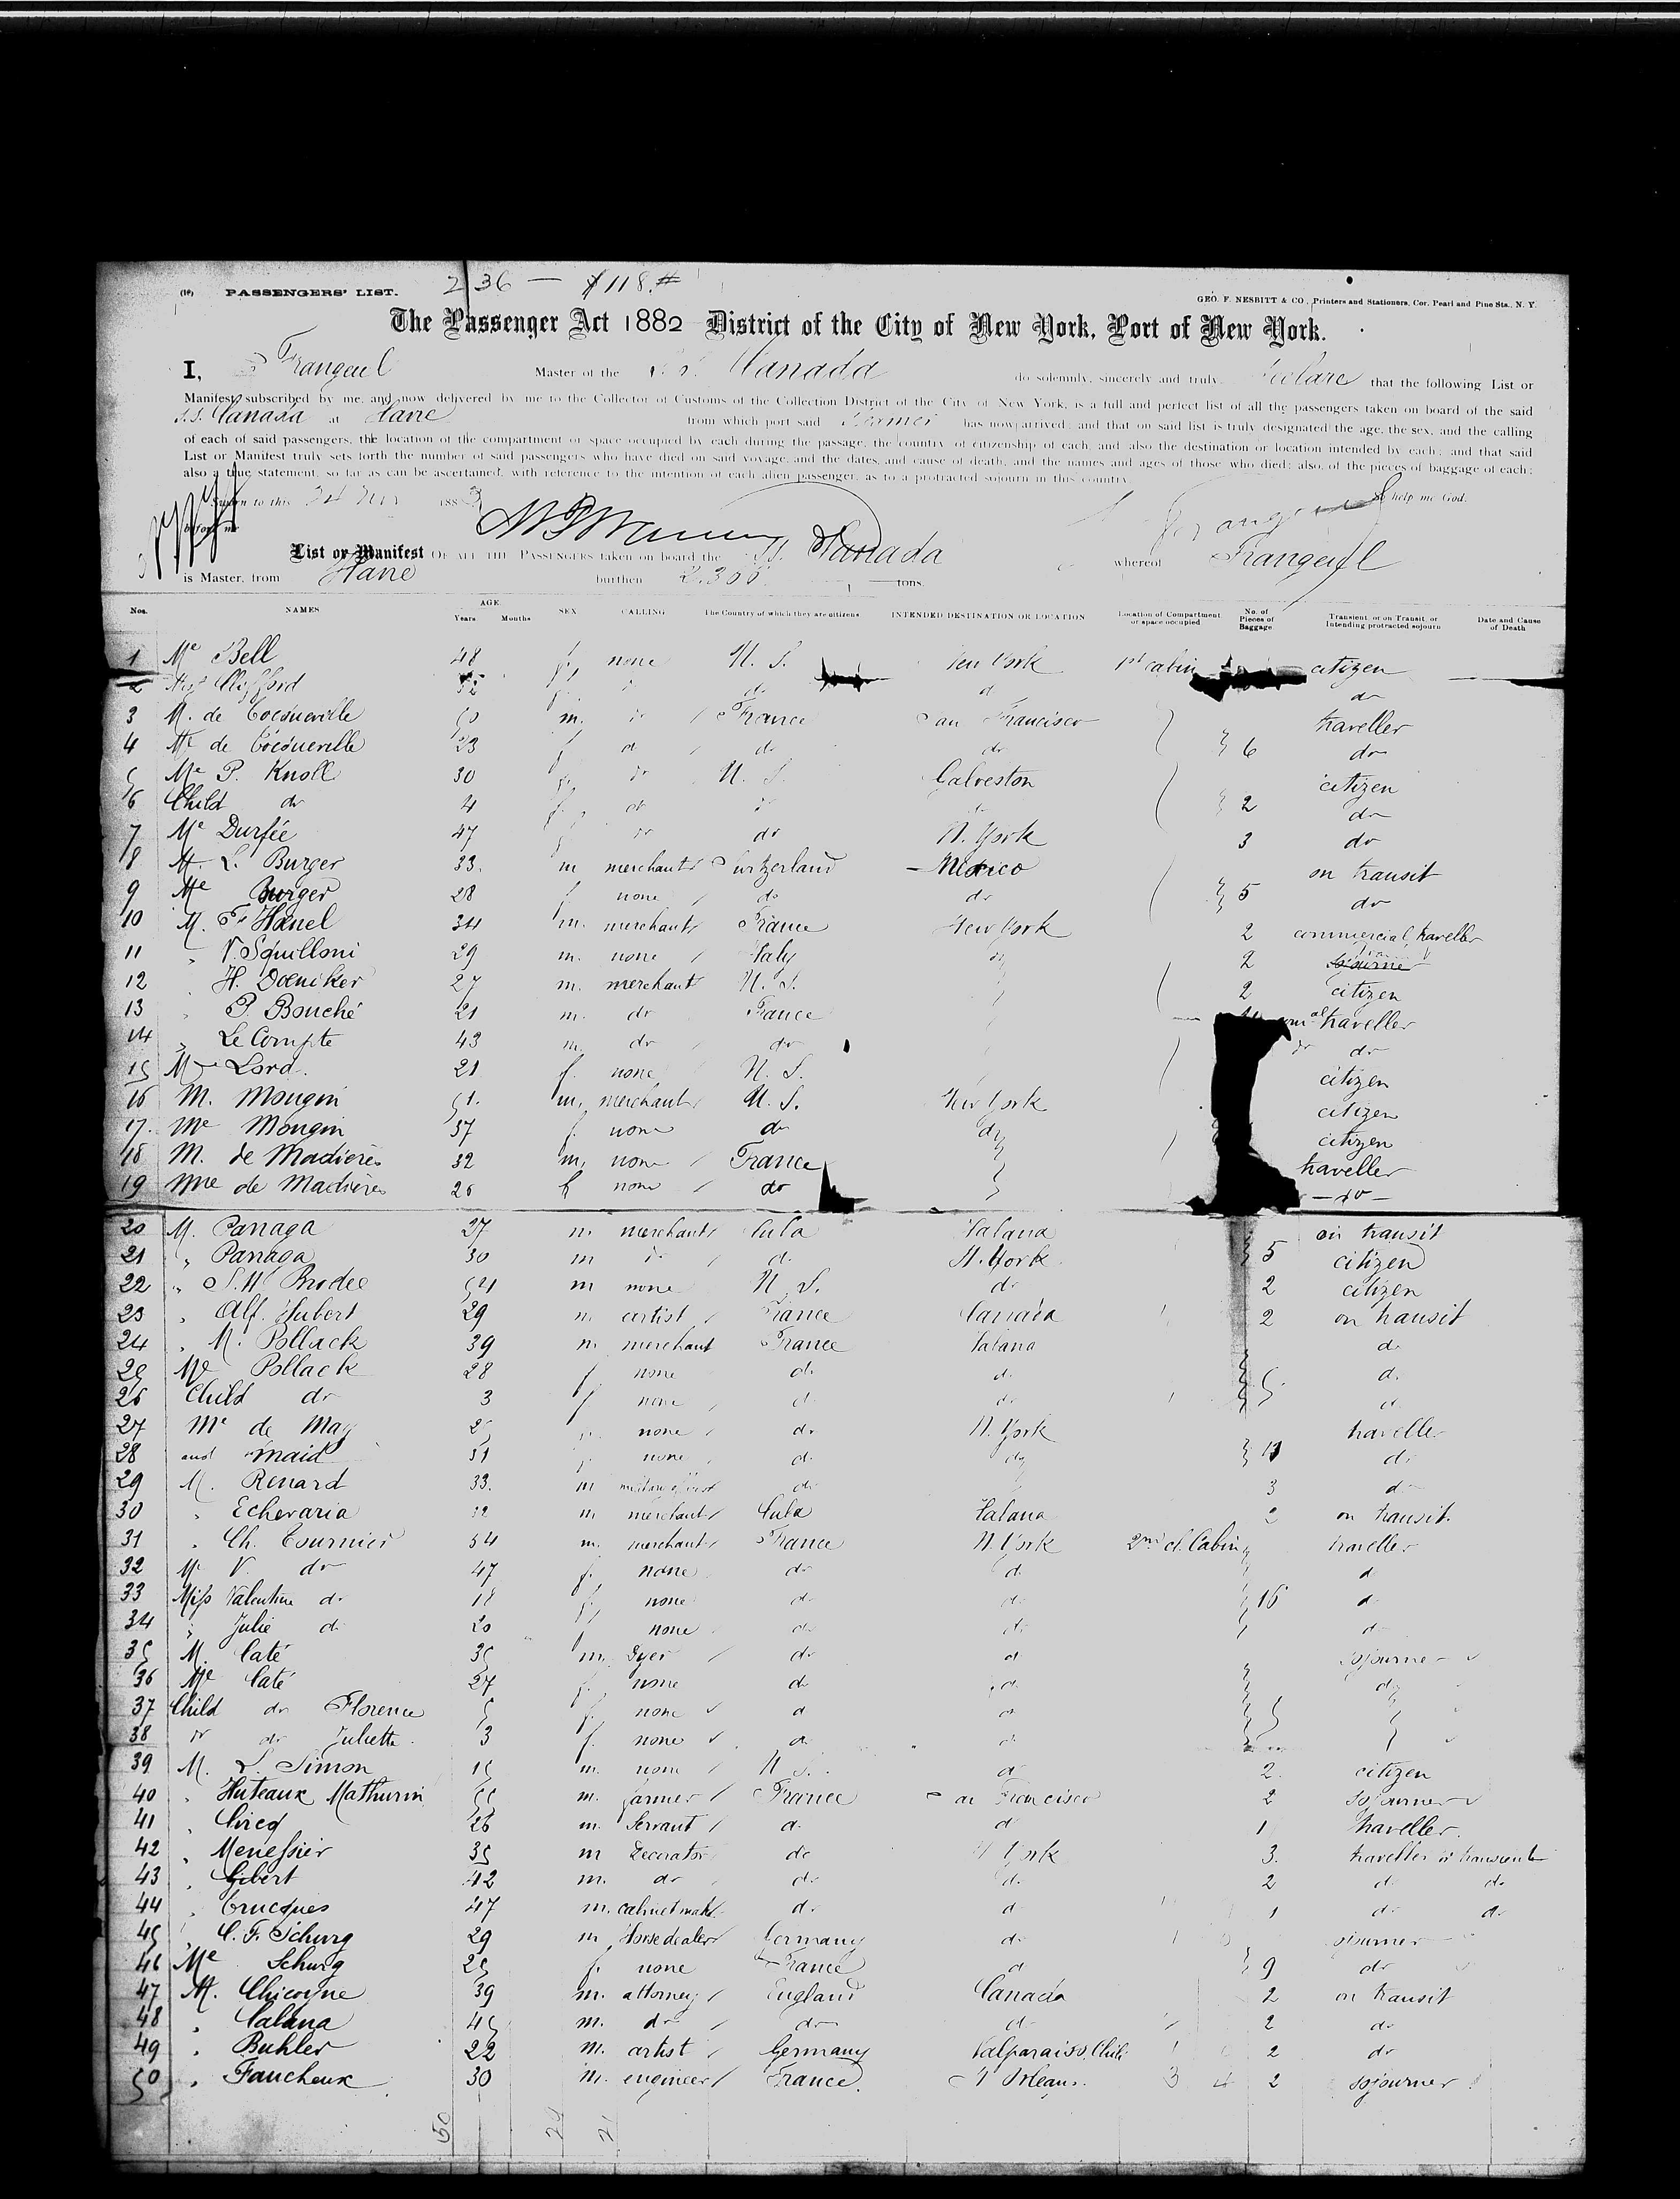 (10) PASSENGERS' LIST. 236 — $118.#
GEO. F. NESBITT & CO., Printers and Stationers, Cor. Pearl and Pine Sts., N. Y.
The Passenger Act 1882 District of the City of New York, Port of New York.
I, Frangeul Master of the S.S. Canada do solemnly, sincerely and truly declare that the following List or
Manifest subscribed by me, and now delivered by me to the Collector of Customs of the Collection District of the City of New York, is a full and perfect list of all the passengers taken on board of the said
S.S. Canada at Havre from which port said Steamer has now arrived; and that on said list is truly designated the age, the sex, and the calling
of each of said passengers, the location of the compartment or space occupied by each during the passage, the country of citizenship of each, and also the destination or location intended by each; and that said
List or Manifest truly sets forth the number of said passengers who have died on said voyage, and the dates, and cause of death, and the names and ages of those who died; also, of the pieces of baggage of each;
also a true statement, so far as can be ascertained, with reference to the intention of each alien passenger, as to a protracted sojourn in this country.
Sworn to this 24 188 So help me God.
before me Frangeul
List or Manifest OF ALL THE PASSENGERS taken on board the S.S. Canada whereof Frangeul
is Master, from Havre burthen tons.
Nos. NAMES AGE Years Months SEX CALLING The Country of which they are citizens INTENDED DESTINATION OR LOCATION Location of Compartment or space occupied No. of Pieces of Baggage Transient or on Transit or Intending protracted sojourn Date and Cause of Death
1 Me Bell 48 f. none U. S. New York 1st cabin citizen
2 Clifford 52 f. do do do
3 M. de Cocqueville m. do France San Francisco traveller
4 Me de Cocqueville 23 f do do do 6 do
5 Me P. Knoll 30 f. do U. S. Galveston citizen
6 Child do 4 f. do do 2 do
7 Me Durfée 47 do do N. York 3 do
8 M. L. Burger 33. m merchant Switzerland Mexico on transit
9 Me Burger 28 f none do do 5 do
10 M. F. Hanel 34 m. merchant France New York 2 commercial traveller
11 " V. Squilloni 29 m. none Italy do 2
12 H. Dœniker 27 m. merchant U. S. 2 citizen
13 " P. Bouché 21 m. do France traveller
14 " Le Compte 43 m. do do do do
15 Lord. 21 f. none U. S. citizen
16 M. Mougin 51. m. merchant U. S. New York citizen
17. Me Mougin 37 f. none do do citizen
18 M. de Madières 32 m. none France traveller
19 Mme de Madières 26 f none do — do —
20 M. Parraga 27 m merchant Cuba Havana on transit
21 " Parraga 30 m do do N. York 5 citizen
22 " S. H. Brodee 54 m none U. S. do 2 citizen
23 " Alf. Hubert 29 m artist France Canada 2 on transit
24 " M. Pollack 39 m merchant France Havana do
25 Me Pollack 28 f none do do 5 do
26 Child do 3 f none do do do
27 Me de May none do N. York traveller
28 and maid 31 f. none do do do
29 M. Renard 33. m do 3 do
30 " Echevaria m merchant Cuba Havana 2 on transit.
31 " Ch. Tournier 54 m. merchant France N. York 2nd cl. Cabin traveller
32 Me V. do 47 f. none do do do
33 Miss Valentine do 18 f. none do do 16 do
34 " Julie do 20 none do do do
35 M. Caté 35 m. dyer do do sojourner
36 Me Caté 27 f. none do do do
37 Child do Florence 5 f. none do do 5
38 do do Juliette 3 f. none do do
39 M. L. Simon 15 m. none U. S. do 2. citizen
40 " Huteaux Mathurin 55 m. farmer France San Francisco 2 sojourner
41 " Circq 26 m. Servant do do 1 traveller.
42 " Menessier 35 m Decorator do N York 3. traveller or transient
43 " Gibert 42 m. do do do 2 do do
44 " Crucques 47 m. cabinet maker do do 1 do do
45 " C. F. Schurg 29 m Horse dealer Germany do sojourner
46 Me Schurg 25 f. none France do 9 do
47 M. Chicoyne 39 m. attorney England Canada 2 on transit
48 " Cabana 45 m. do do do 2 do
49 " Buhler 22 m. artist Germany Valparaiso. Chili 2 do
50 " Faucheux 30 m. engineer France N Orleans. 3 4 2 sojourner
50 21